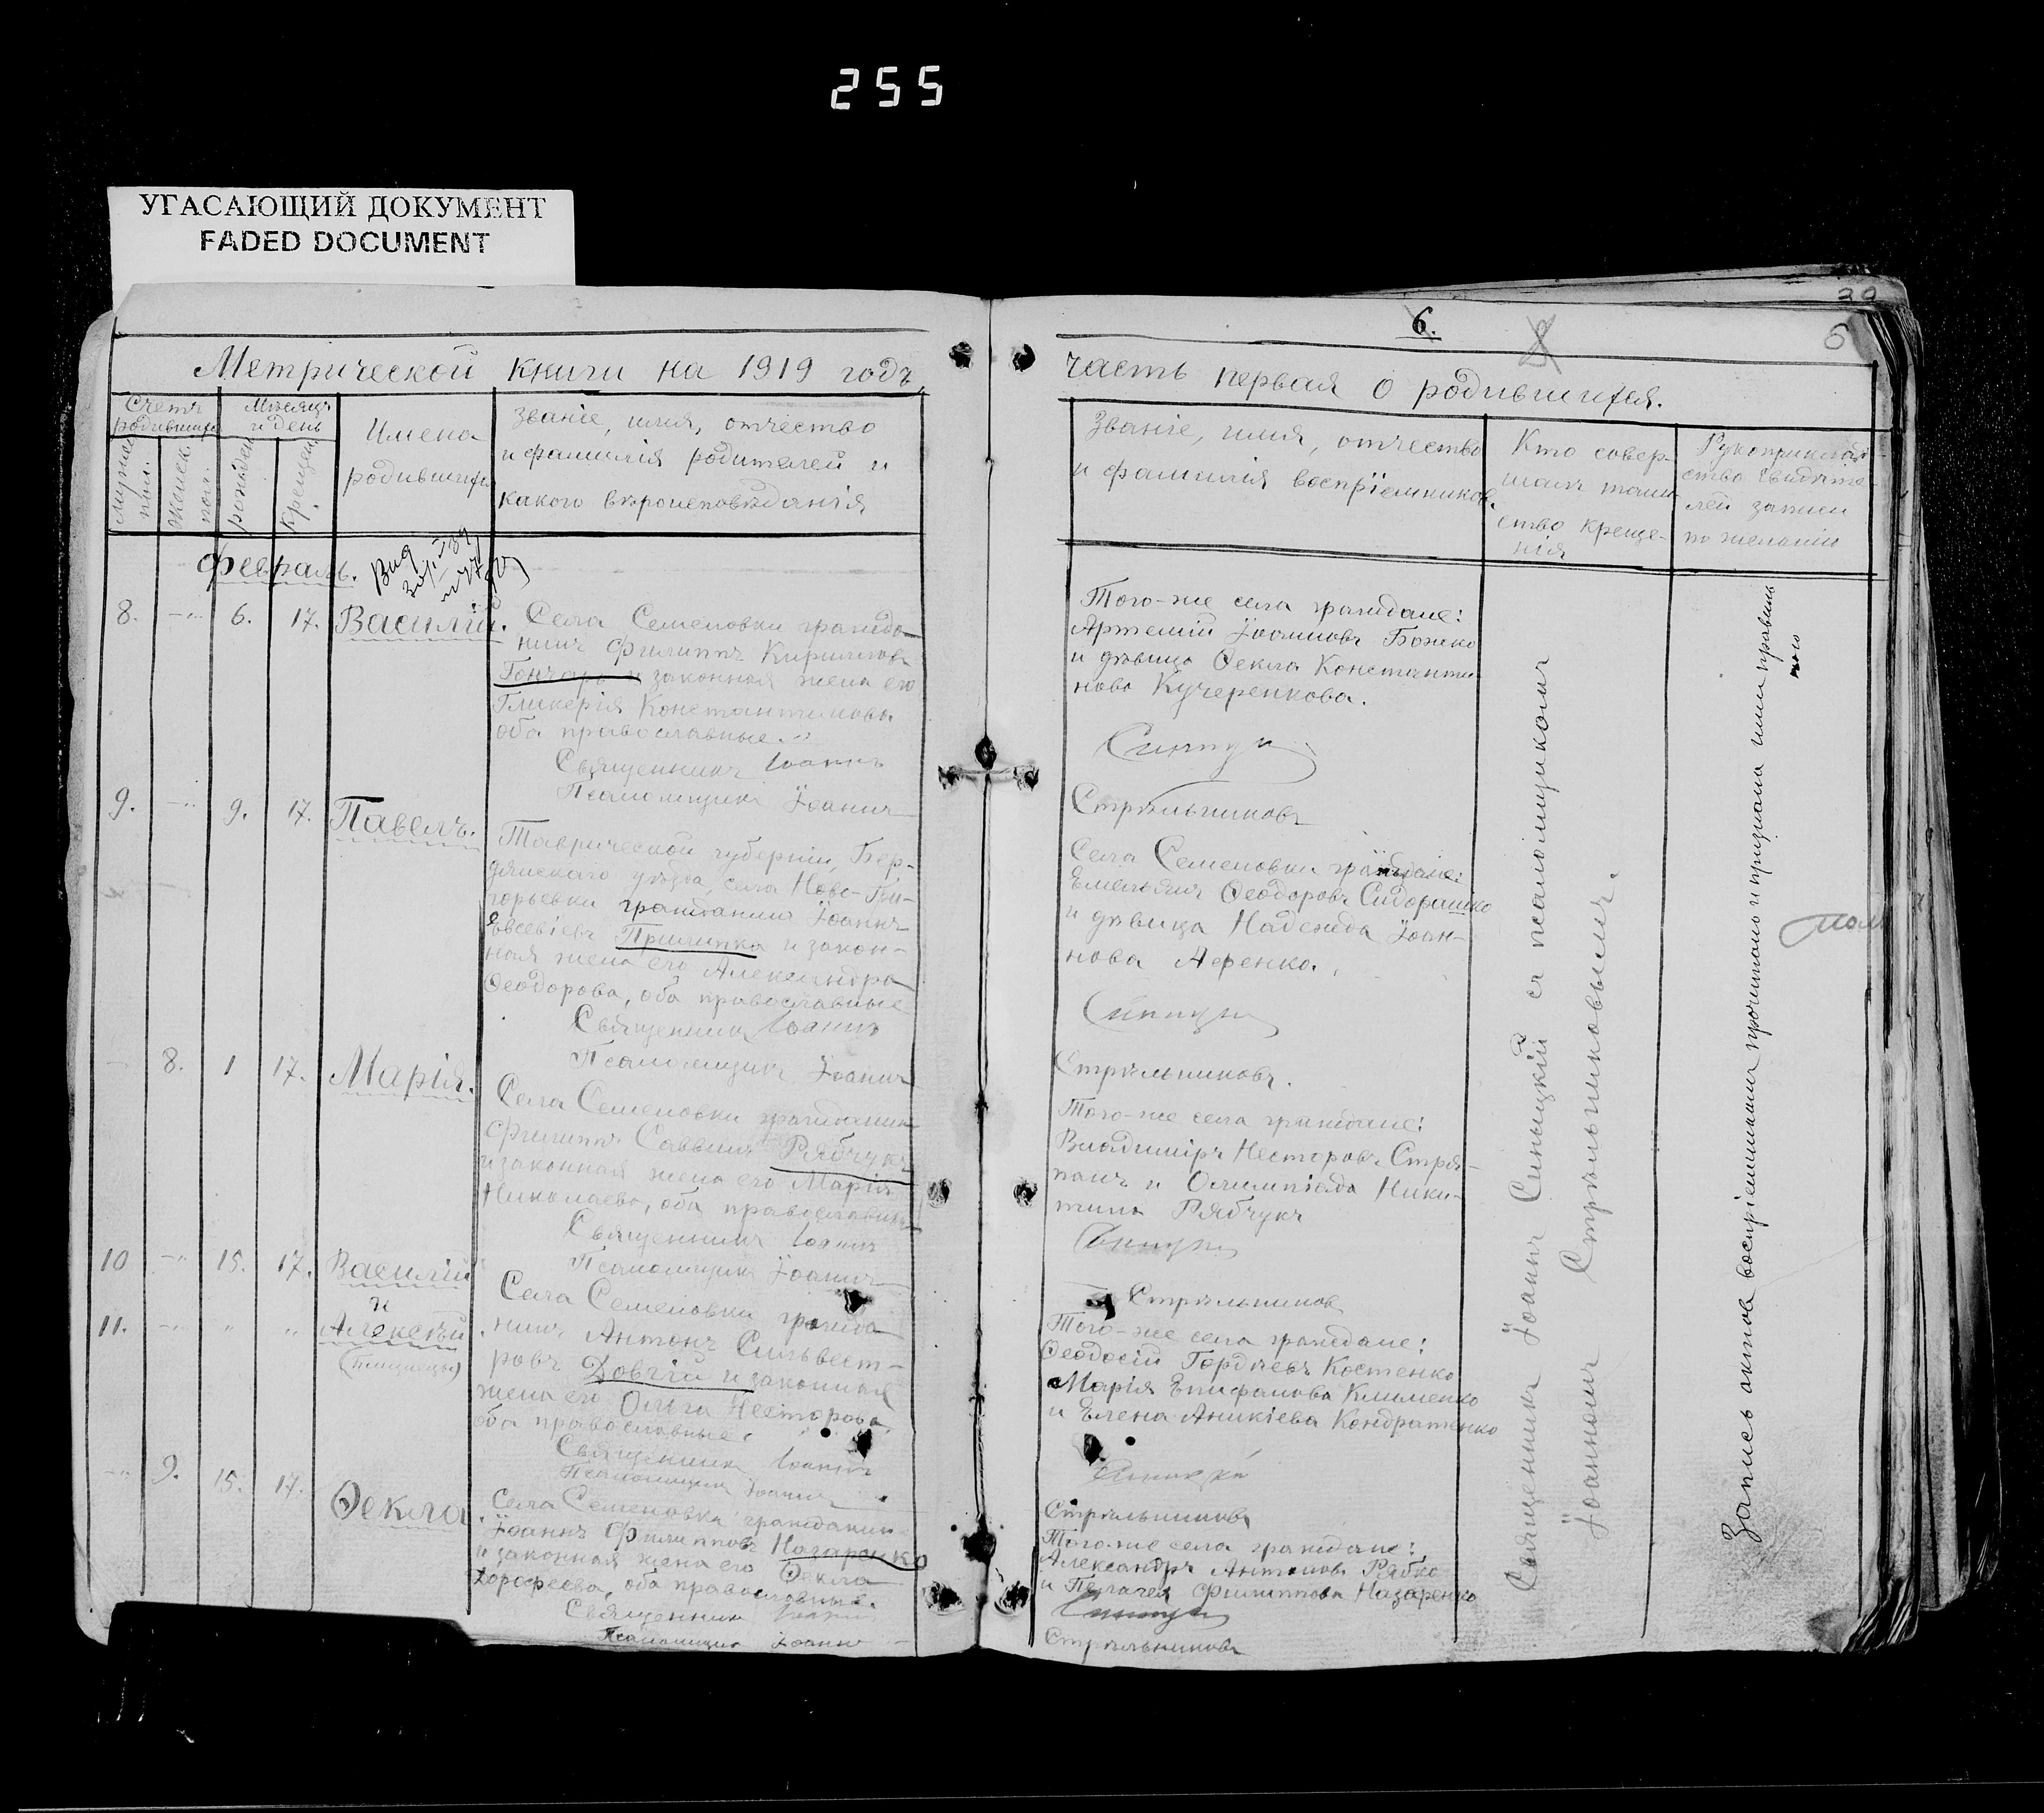 255
УГАСАЮЩИЙ ДОКУМЕНТ
FADED DOCUMENT
6.
5
Метрической книги на 1919 годъ
часть первая о родившихся.
Счетъ родившихся
Мужеск. пол.
Женск. пол.
Мѣсяцъ и день
рожден.
крещен.
Имена
родившихся
Званіе, имя, отчество
и фамилія родителей и
какого вѣроисповѣданія
Званіе, имя, отчество
и фамилія воспріемниковъ.
Кто совер-
шалъ таин-
ство креще-
нія
Рукоприклад
ство свидѣте-
лей записи
по желанію
Февраль.
8. -"- 6. 17. Василій.
Села Семеновки гражда-
нинъ Филиппъ Кирилловъ
Гончаръ и законная жена его
Гликерія Константинова
оба православные.
Священникъ Іоаннъ
Псаломщикъ Іоаннъ
Того-же села граждане:
Артемій Іоанновъ Божко
и дѣвица Ѳекла Константи
нова Кучеренкова.
Стрѣльниковъ
9. -"- 9. 17. Павелъ.
Таврической губерніи, Бер-
дянскаго уѣзда, села Ново-Гри-
горьевки гражданинъ Іоаннъ
Евсевіевъ Прилипка и закон-
ная жена его Александра
Ѳеодорова, оба православные
Священникъ Іоаннъ
Псаломщикъ Іоаннъ
Села Семеновки граждане:
Емельянъ Ѳеодоровъ Сидорашко
и дѣвица Надежда Іоан-
нова Аѳенко.
Стрѣльниковъ.
8. 1 17. Марія.
Села Семеновки гражданинъ
Филиппъ Саввинъ Рябчукъ
и законная жена его Марія
Николаева, оба православные
Священникъ Іоаннъ
Псаломщикъ Іоаннъ
Того-же села граждане:
Владиміръ Несторовъ Стря-
панъ и Олимпіада Ники-
тина Рябчукъ
Стрѣльниковъ
10 -"- 15. 17. Василій
и
11. -"- " " Алексѣй
(близнецы)
Села Семеновки гражда
нинъ Антонъ Сильвест-
ровъ Довгій и законная
жена его Ольга Несторова
оба православные.
Священникъ Іоаннъ
Псаломщикъ Іоаннъ
Того-же села граждане:
Ѳеодосій Гордѣевъ Костенко
Марія Епифанова Клименко
и Елена Аникіева Кондратенко
Стрѣльниковъ
-"- 9. 15. 17. Ѳекла
Села Семеновки гражданинъ
Іоаннъ Филипповъ Назаренко
и законная жена его Ѳекла
Дорофеева, оба православные.
Священникъ Іоаннъ
Псаломщикъ Іоаннъ
Того-же села граждане:
Александръ Антоновъ Рябко
и Пелагея Филиппова Назаренко
Стрѣльниковъ
Священникъ Іоаннъ Синицкій съ псаломщикомъ
Іоанномъ Стрѣльниковымъ.
Запись актов воспріемниками прочитана и признана ими правиль
ною